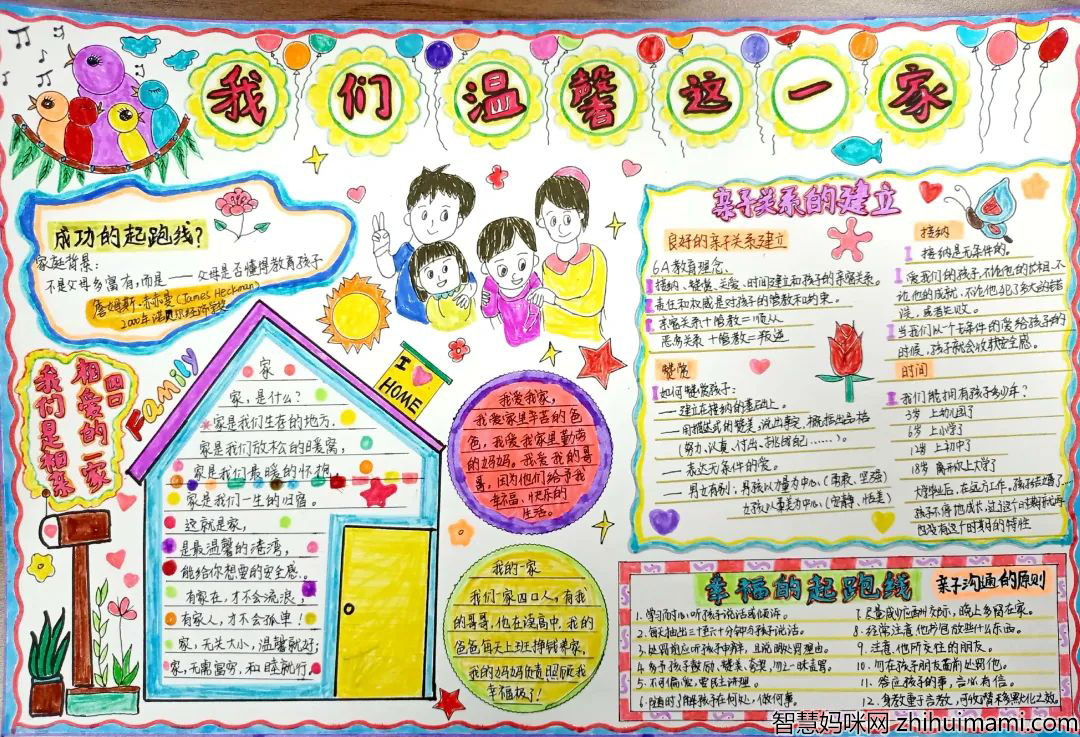 我们温馨这一家
成功的起跑线?
家庭背景:
不是父母多富有,而是——父母是否懂得教育孩子
詹姆斯·赫克曼(James Heckman)
2000年诺贝尔经济学奖
我们是相亲
相爱的一家
四口
Family
I
HOME
家
家,是什么?
家是我们生存的地方.
家是我们放松的暖窝,
家是我们最暖的怀抱,
家是我们一生的归宿。
这就是家,
是最温馨的港湾,
能给你想要的安全感。
有家在,才不会流浪,
有家人,才不会孤单!
家,无关大小,温馨就好;
家,无需富穷,和睦就行。
我爱我家,
我爱家里辛苦的爸
爸,我爱我家里勤劳
的妈妈。我爱我的哥
哥,因为他们给予我
幸福、快乐的
生活。
我的一家
我们一家四口人,有我
的哥哥,他在读高中,我的
爸爸每天上班挣钱养家,
我的妈妈负责照顾我
幸福极了!
亲子关系的建立
良好的亲子关系建立
6A教育理念.
接纳、赞赏、关爱、时间建立和孩子的亲密关系。
责任和权威是对孩子的管教和约束。
亲密关系+管教=顺从
恶劣关系+管教=叛逆
赞赏
如何赞赏孩子:
——建立在接纳的基础上。
(努力、认真、付出、挑战自己……)。
——表达无条件的爱。
——男女有别,男孩以力量为中心,(勇敢、坚强)
接纳
接纳是无条件的。
爱我们的孩子,不论他的长相、不
论他的成就,不论他犯了多大的错
误,或者失败。
当我们以一个无条件的爱给孩子的
时候,孩子就会收获安全感。
时间
我们能拥有孩子多少年?
3岁 上幼儿园了
6岁 上小学了
12岁 上初中了
18岁 离开家上大学了
大学毕业后,在远方工作,孩子结婚了…
幸福的起跑线
亲子沟通的原则
1.学习耐心听孩子说话或倾诉。
2.每天抽出三十至六十分钟与孩子说话。
3.处罚前应听孩子申辩,且说明处罚理由。
4.多予孩子鼓励、赞美、奖赏,勿一味责骂。
5.不可偏爱,要民主讲理。
6.随时了解孩子在何处,做何事。
7.尽量减少应酬外交际,晚上多留在家。
8.经常注意他书包放些什么东西。
9.注意他所交往的朋友。
10.勿在孩子朋友面前处罚他。
11.答应孩子的事,言必有信。
12.身教重于言教,可收潜移默化之效。
智慧妈咪网 zhihuimami.com